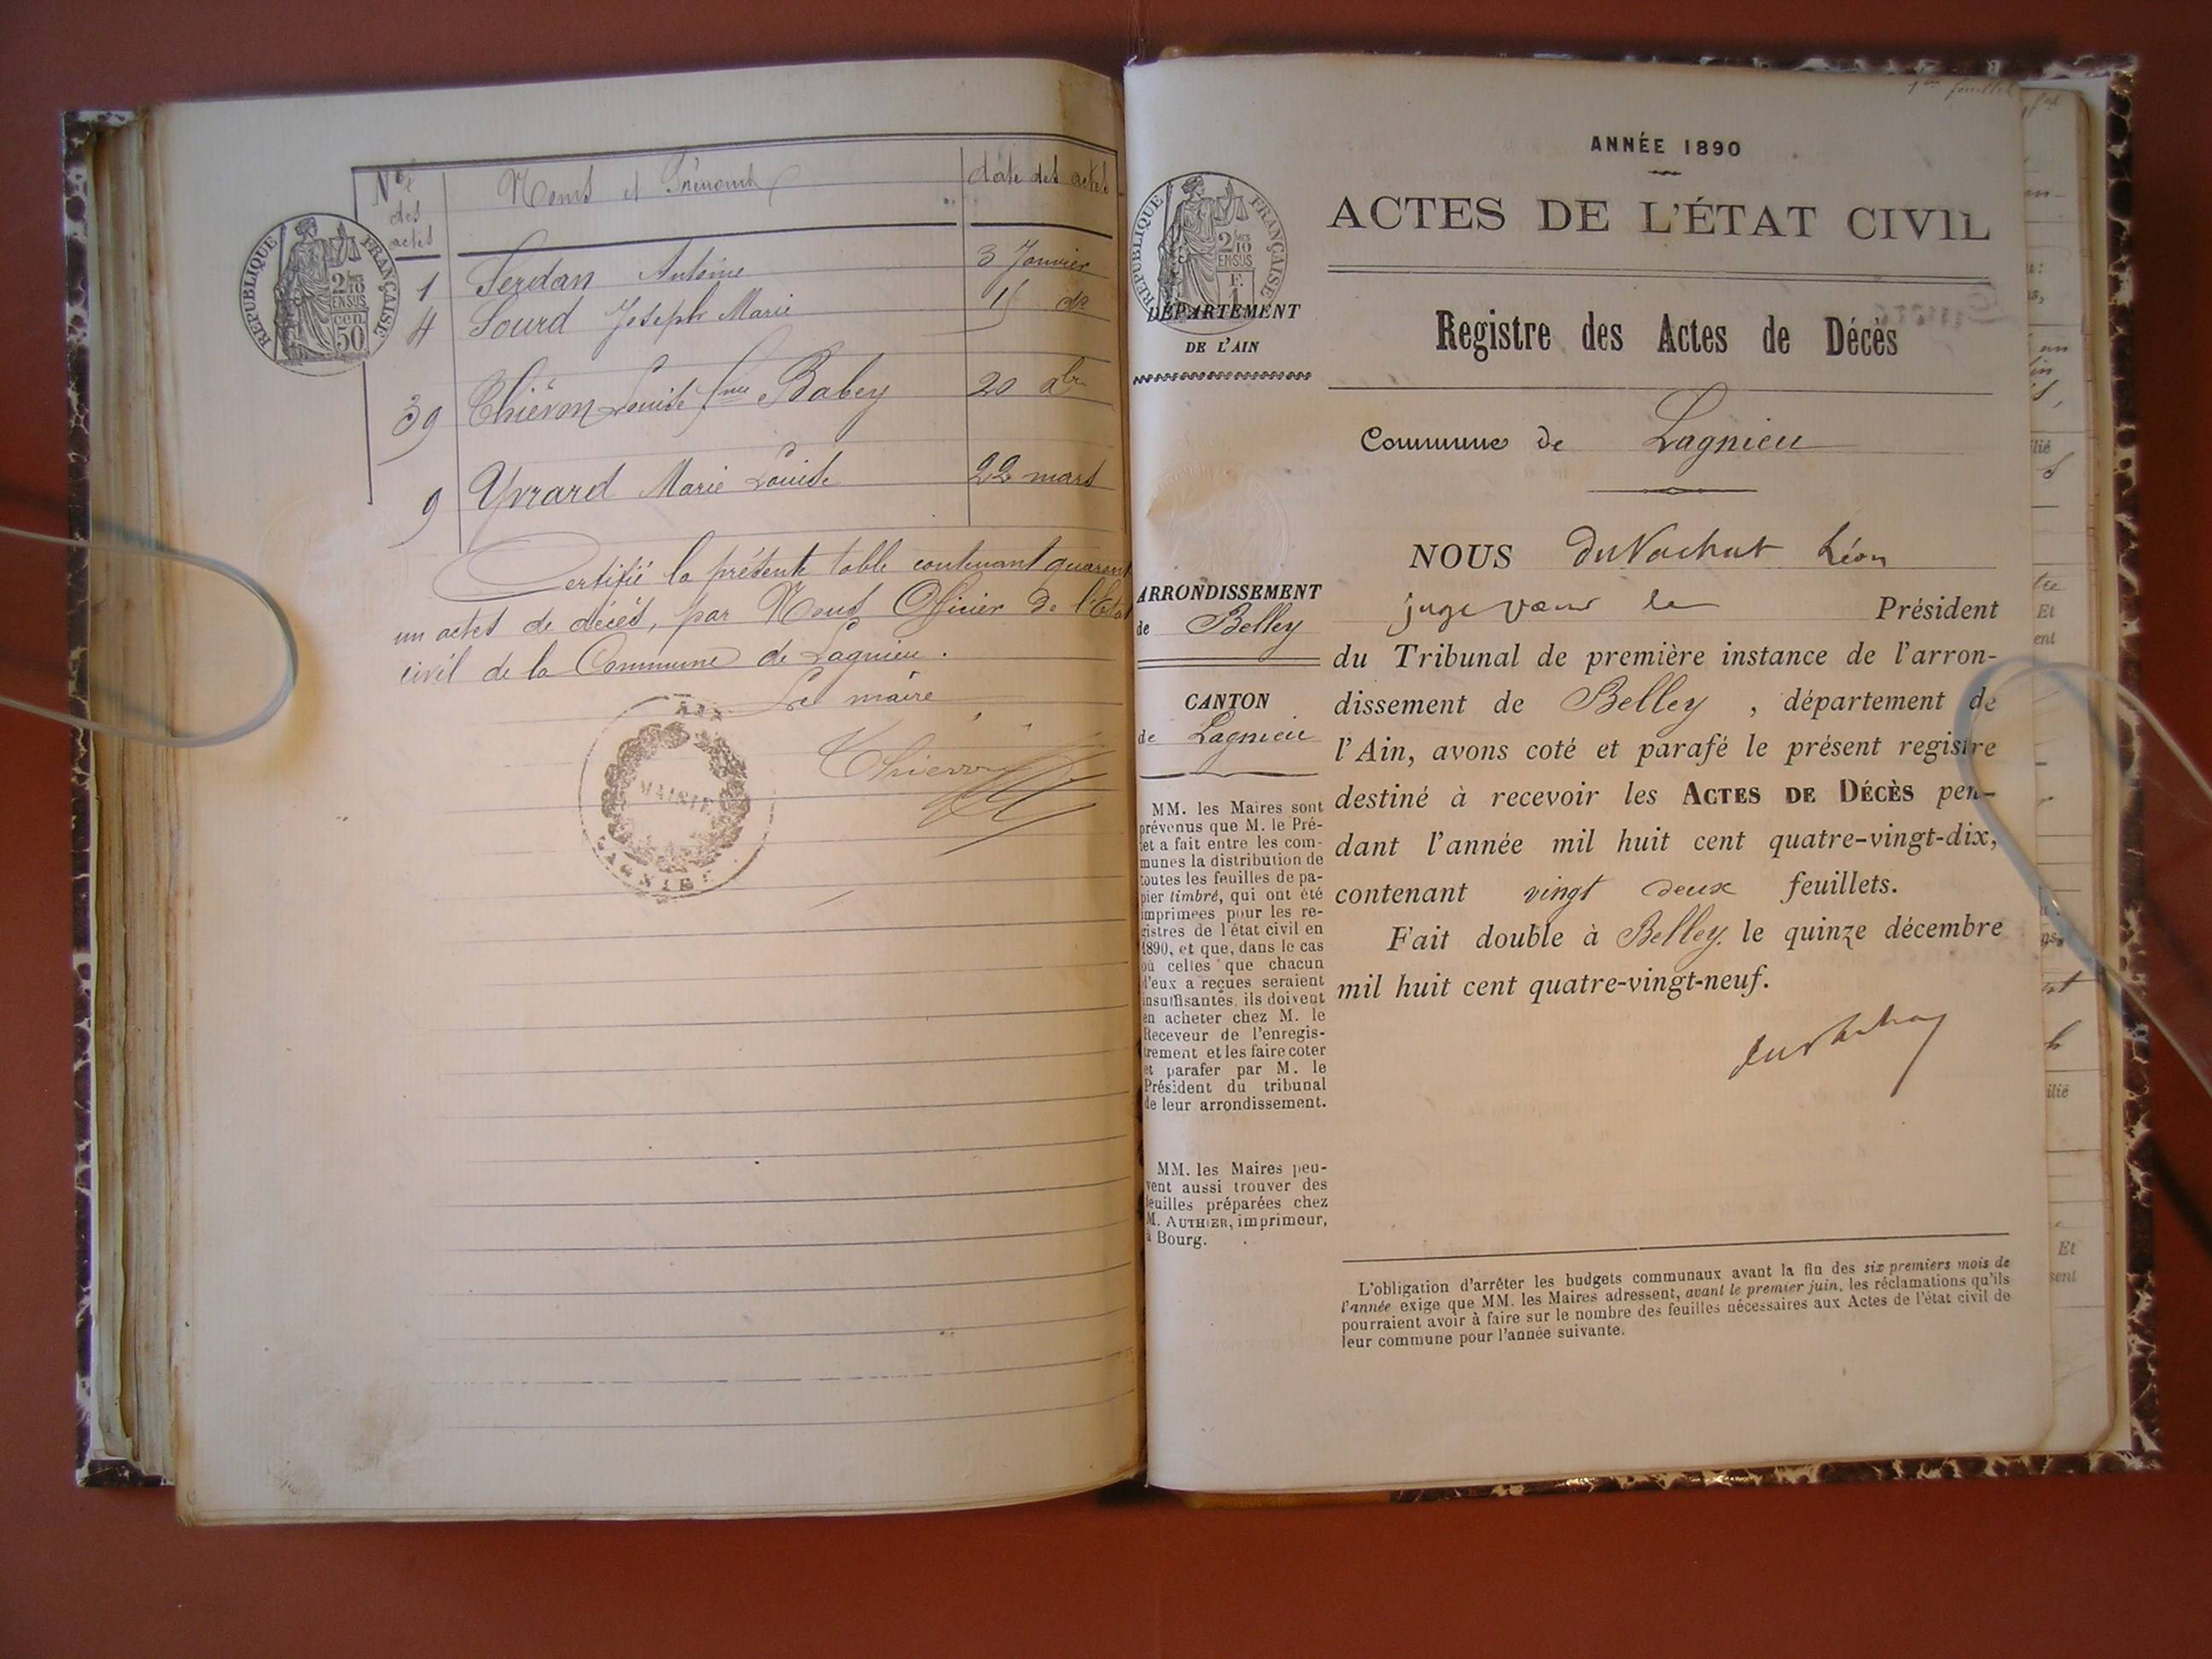 Nos des actes
Noms et Prénoms
date des actes
RÉPUBLIQUE FRANÇAISE
2/10 EN SUS
cen. 50
1 Serdan Antoine 3 Janvier
4 Sourd Joseph Marie 15 do
39 Thiévon Louise fme Babey 20 Xbre
9 Yvrard Marie Louise 22 mars
Certifié la présente table contenant quarant
un actes de décès, par Nous Officier de l'Etat
civil de la Commune de Lagnieu.
Le maire
AIN
MAIRIE
LAGNIEU
1er feuillet
ANNÉE 1890
ACTES DE L'ÉTAT CIVIL
RÉPUBLIQUE FRANÇAISE
2/10 EN SUS
F. 1
DÉPARTEMENT
DE L'AIN
Registre des Actes de Décès
Commune de Lagnieu
NOUS du Vachat Léon
ARRONDISSEMENT
de Belley
CANTON
de Lagnieu
juge pour le Président
du Tribunal de première instance de l'arron-
dissement de Belley, département de
l'Ain, avons coté et parafé le présent registre
destiné à recevoir les ACTES DE DÉCÈS pen-
dant l'année mil huit cent quatre-vingt-dix,
contenant vingt deux feuillets.
Fait double à Belley, le quinze décembre
mil huit cent quatre-vingt-neuf.
MM. les Maires sont
prévenus que M. le Pré-
fet a fait entre les com-
munes la distribution de
toutes les feuilles de pa-
pier timbré, qui ont été
imprimées pour les re-
gistres de l'état civil en
1890, et que, dans le cas
où celles que chacun
d'eux a reçues seraient
insuffisantes, ils doivent
en acheter chez M. le
Receveur de l'enregis-
trement et les faire coter
et parafer par M. le
Président du tribunal
de leur arrondissement.
MM. les Maires peu-
vent aussi trouver des
feuilles préparées chez
M. AUTHIER, imprimeur,
à Bourg.
L'obligation d'arrêter les budgets communaux avant la fin des six premiers mois de
l'année exige que MM. les Maires adressent, avant le premier juin, les réclamations qu'ils
pourraient avoir à faire sur le nombre des feuilles nécessaires aux Actes de l'état civil de
leur commune pour l'année suivante.